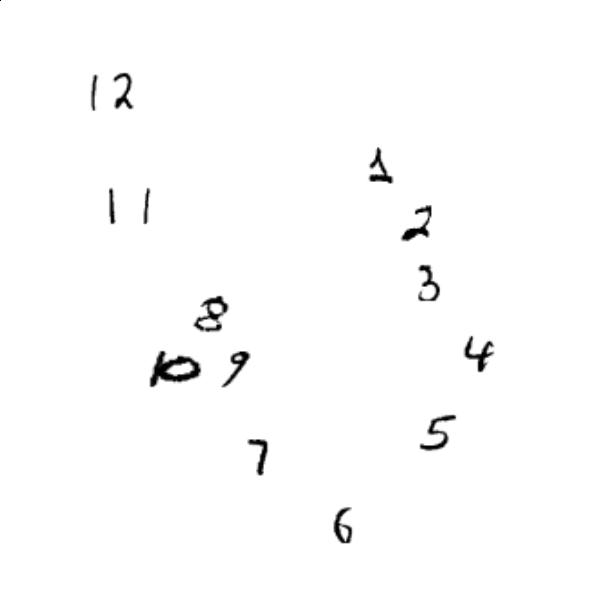 12
1
11
2
3
8
4
10 9
5
7
6